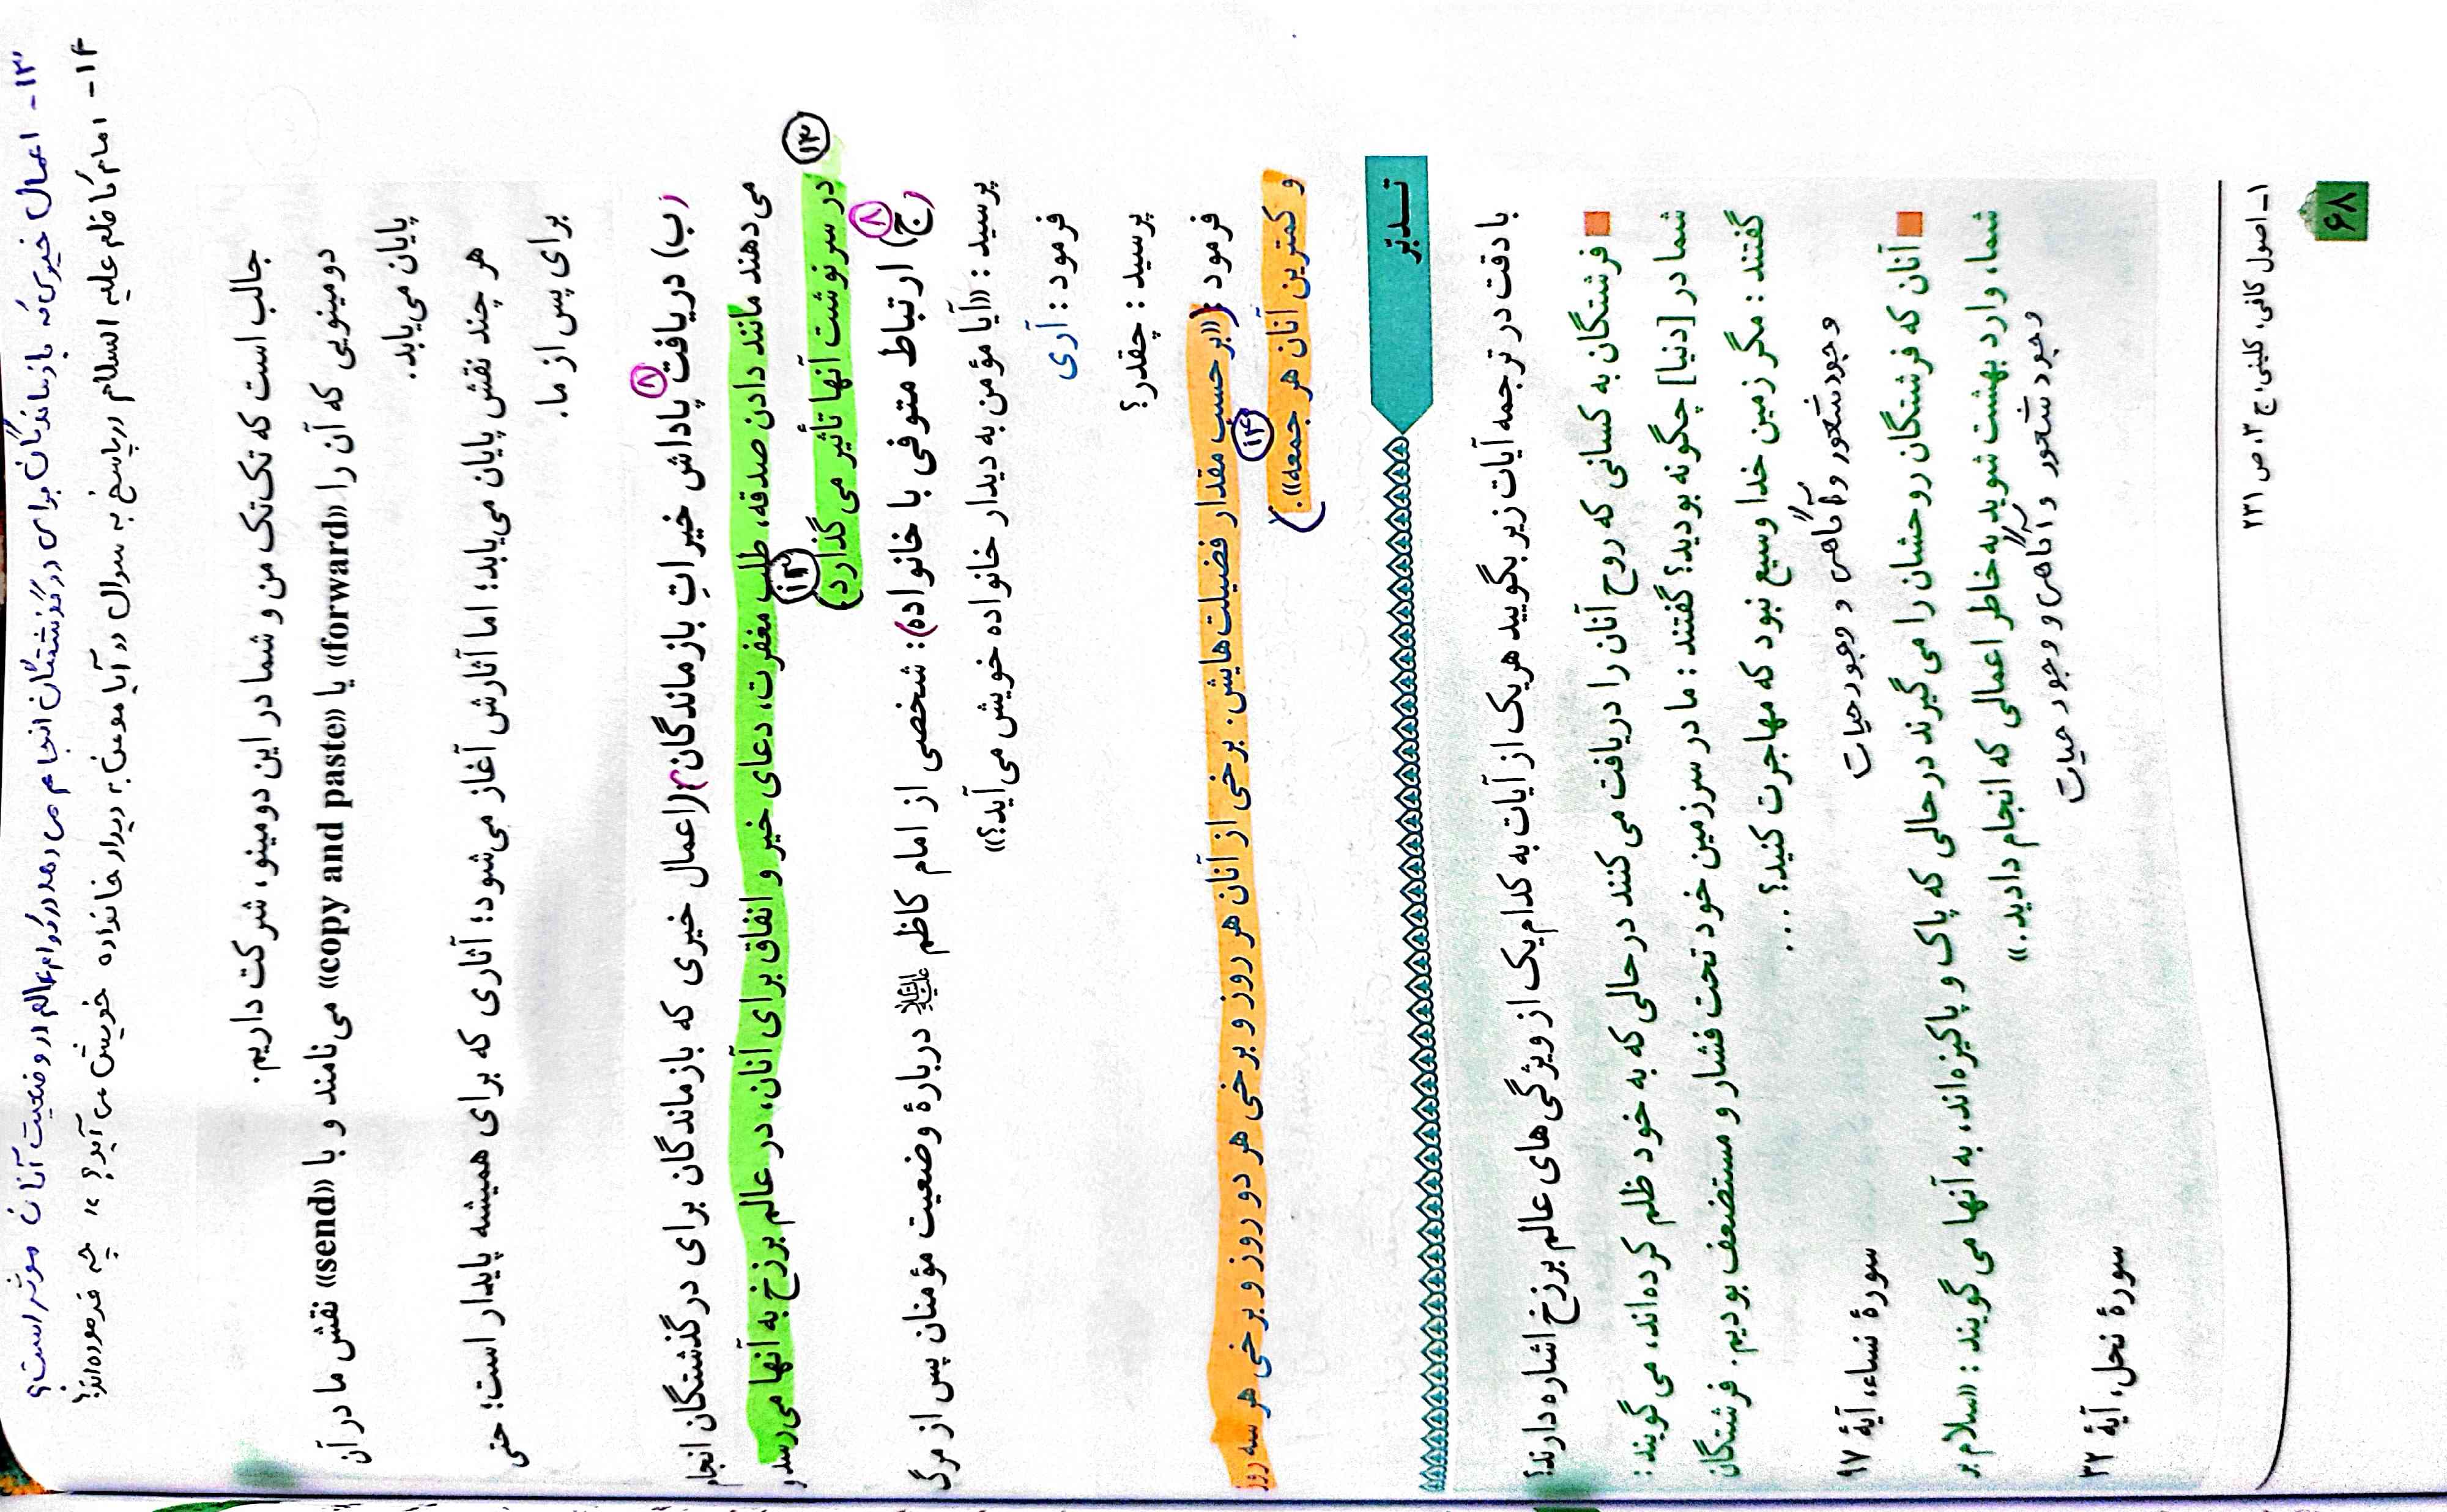 ۱۳- اعمال خیری که بازماندگان برای درگذشتگان انجام می دهند در کدام عالم در وضعیت آنان موثر است؟
۱۴- امام کاظم علیه السلام در پاسخ به سوال «آیا مومن به دیدار خانواده خویش می آید؟» چه فرموده اند؟
جالب است که تک‌تک من و شما در این دومینو، شرکت داریم.
دومینویی که آن را «forward» یا «copy and paste» می‌نامند و با «send» نقش ما در آن
پایان می‌یابد.
هر چند نقش پایان می‌یابد؛ اما آثارش آغاز می‌شود؛ آثاری که برای همیشه پایدار است؛ حتی
برای پس از ما.
ب) دریافت پاداش خیراتِ بازماندگان (اعمال خیری که بازماندگان برای درگذشتگان انجام
۸
می‌دهند مانند دادن صدقه، طلب مغفرت، دعای خیر و انفاق برای آنان، در عالم برزخ به آنها می‌رسد و
در سرنوشت آنها تأثیر می‌گذارد)
۱۳
۱۳
ج) ارتباط متوفی با خانواده): شخصی از امام کاظم علیه السلام دربارهٔ وضعیت مؤمنان پس از مرگ
۸
پرسید: «آیا مؤمن به دیدار خانواده خویش می‌آید؟»
فرمود: آری
پرسید: چقدر؟
فرمود: «بر حسب مقدار فضیلت‌هایش. برخی از آنان هر روز و برخی هر دو روز و برخی هر سه روز
۱۴
و کمترین آنان هر جمعه».
تــدبّر
با دقت در ترجمه آیات زیر بگویید هر یک از آیات به کدام یک از ویژگی‌های عالم برزخ اشاره دارند؟
فرشتگان به کسانی که روح آنان را دریافت می‌کنند در حالی که به خود ظلم کرده‌اند، می‌گویند:
شما در [دنیا] چگونه بودید؟ گفتند: ما در سرزمین خود تحت فشار و مستضعف بودیم. فرشتگان
گفتند: مگر زمین خدا وسیع نبود که مهاجرت کنید؟ ...
وجود شعور و آگاهی و وجود حیات
سورهٔ نساء، آیهٔ ۹۷
آنان که فرشتگان روحشان را می‌گیرند در حالی که پاک و پاکیزه‌اند، به آنها می‌گویند: «سلام بر
شما، وارد بهشت شوید به خاطر اعمالی که انجام دادید.»
وجود شعور و آگاهی و وجود حیات
سورهٔ نحل، آیهٔ ۳۲
۱ـ اصول کافی، کلینی، ج ۳، ص ۲۳۱
۶۸